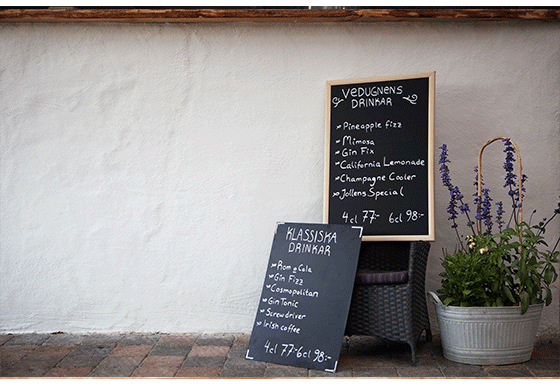 VEDUGNENS
DRINKAR
Pineapple fizz
Mimosa
Gin Fix
California Lemonade
Champagne Cooler
Jollens Special
4cl 77:- 6cl 98:-
KLASSISKA
DRINKAR
Rom e Cola
Gin Fizz
Cosmopolitan
Gin Tonic
Screwdriver
Irish coffee
4cl 77:- 6cl 98:-